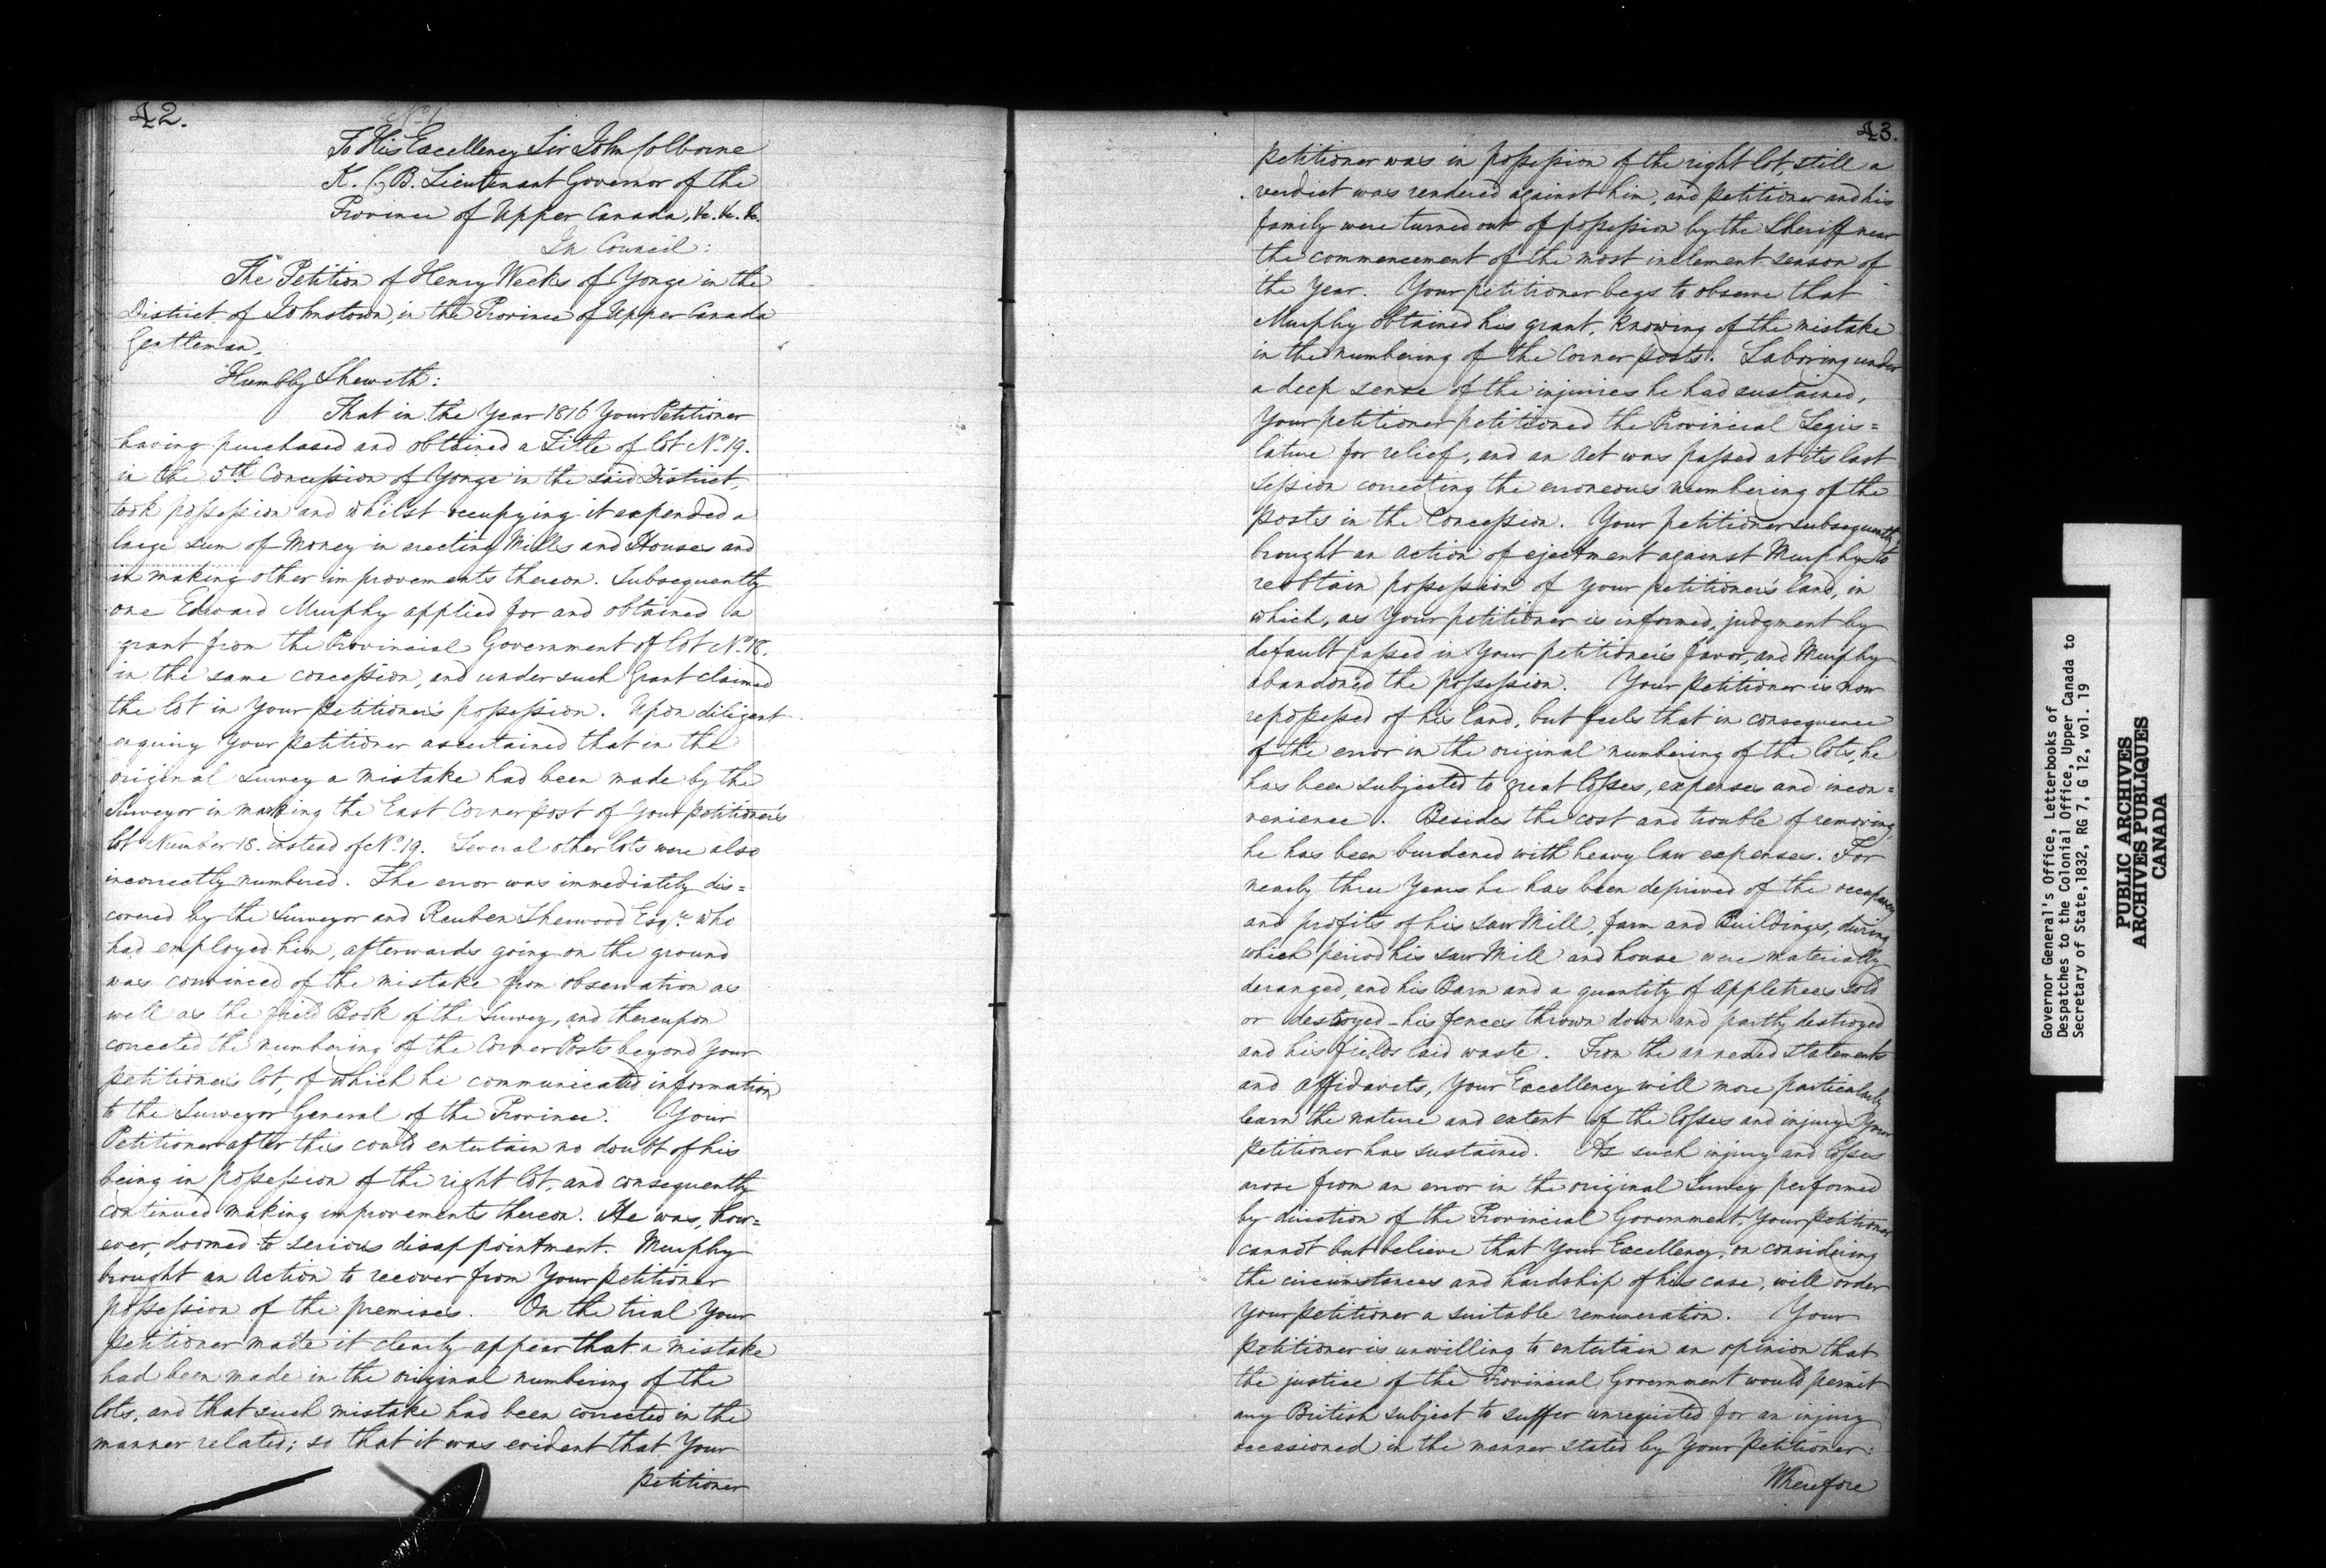 42.
No. 1
To His Excellency Sir John Colborne
K. C. B. Lieutenant Governor of the
Province of Upper Canada, &c. &c. &c.
In Council:
The Petition of Henry Weeks of Yonge in the
District of Johnstown, in the Province of Upper Canada
Gentleman,
Humbly Sheweth:
That in the Year 1816 Your Petitioner
having purchased and obtained a Title of lot No. 19.
in the 5th Concession of Yonge in the said District,
took possession and whilst occupying it expended a
large sum of Money in erecting Mills and Houses and
in making other improvements thereon. Subsequently
one Edward Murphy applied for and obtained a
grant from the Provincial Government of lot No. 18.
in the same concession, and under such Grant claimed
the lot in Your Petitioner's possession. Upon diligent
enquiry Your Petitioner ascertained that in the
original Survey a mistake had been made by the
Surveyor in marking the East Corner post of Your petitioner's
lot Number 18. instead of No. 19. Several other lots were also
incorrectly numbered. The error was immediately dis=
covered by the Surveyor and Reuben Sherwood Esqr. who
had employed him, afterwards going on the ground
was convinced of the mistake from observation as
well as the field Book of the Survey, and thereupon
corrected the numbering of the Corner Posts beyond Your
petitioner's lot, of which he communicated information
to the Surveyor General of the Province. Your
Petitioner after this could entertain no doubt of his
being in possession of the right lot, and consequently
continued making improvements thereon. He was, how=
ever, doomed to serious disappointment. Murphy
brought an Action to recover from Your petitioner
possession of the premises. On the trial Your
petitioner made it clearly appear that a mistake
had been made in the original numbering of the
lots, and that such mistake had been corrected in the
manner related; so that it was evident that Your
petitioner
43.
petitioner was in possession of the right lot, still a
verdict was rendered against him, and petitioner and his
family were turned out of possession by the Sheriff near
the commencement of the most inclement season of
the Year. Your petitioner begs to observe that
Murphy obtained his grant, knowing of the mistake
in the numbering of the Corner posts. Laboring under
a deep sense of the injuries he had sustained,
Your petitioner petitioned the Provincial Legis=
lature for relief, and an Act was passed at its last
session correcting the erroneous numbering of the
posts in the Concession. Your petitioner subsequently
brought an action of ejectment against Murphy to
reobtain possession of Your petitioner's land, in
which, as Your petitioner is informed, judgment by
default passed in Your petitioner's favor, and Murphy
abandoned the possession. Your petitioner is now
repossessed of his land, but feels that in consequence
of the error in the original numbering of the lots, he
has been subjected to great losses, expenses and incon=
venience. Besides the cost and trouble of removing,
he has been burdened with heavy law expenses. For
nearly three Years he has been deprived of the occupancy
and profits of his saw Mill, farm and Buildings, during
which period his saw Mill and house were materially
deranged, and his Barn and a quantity of Appletrees sold
or destroyed – his fences thrown down and partly destroyed
and his fields laid waste. From the annexed statements
and affidavits, Your Excellency will more particularly
learn the nature and extent of the losses and injury Your
petitioner has sustained. As such injury and losses
arose from an error in the original Survey performed
by direction of the Provincial Government, Your petitioner
cannot but believe that Your Excellency, on considering
the circumstances and hardship of his case, will order
Your petitioner a suitable remuneration. Your
petitioner is unwilling to entertain an opinion that
the justice of the Provincial Government would permit
any British subject to suffer unrequited for an injury
occasioned in the manner stated by Your petitioner:
Wherefore
Governor General's Office, Letterbooks of
Despatches to the Colonial Office, Upper Canada to
Secretary of State,1832, RG 7, G 12, vol. 19
PUBLIC ARCHIVES
ARCHIVES PUBLIQUES
CANADA